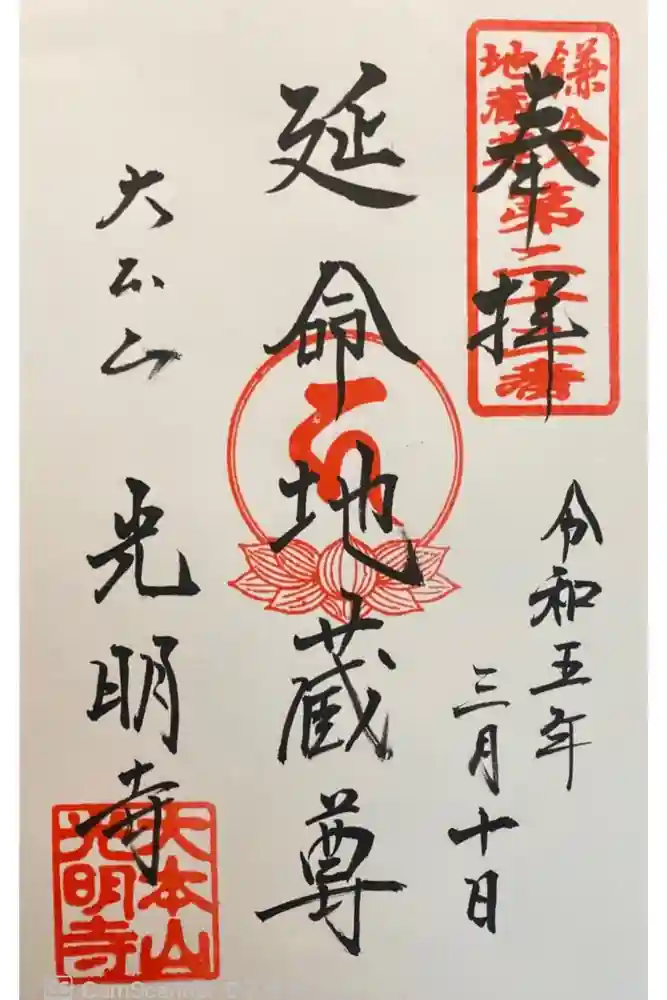 奉拝
鎌倉
地蔵尊
第二十二番
令和五年
三月十日
延命地蔵尊
大本山 光明寺
大本山
光明寺
CamScanner